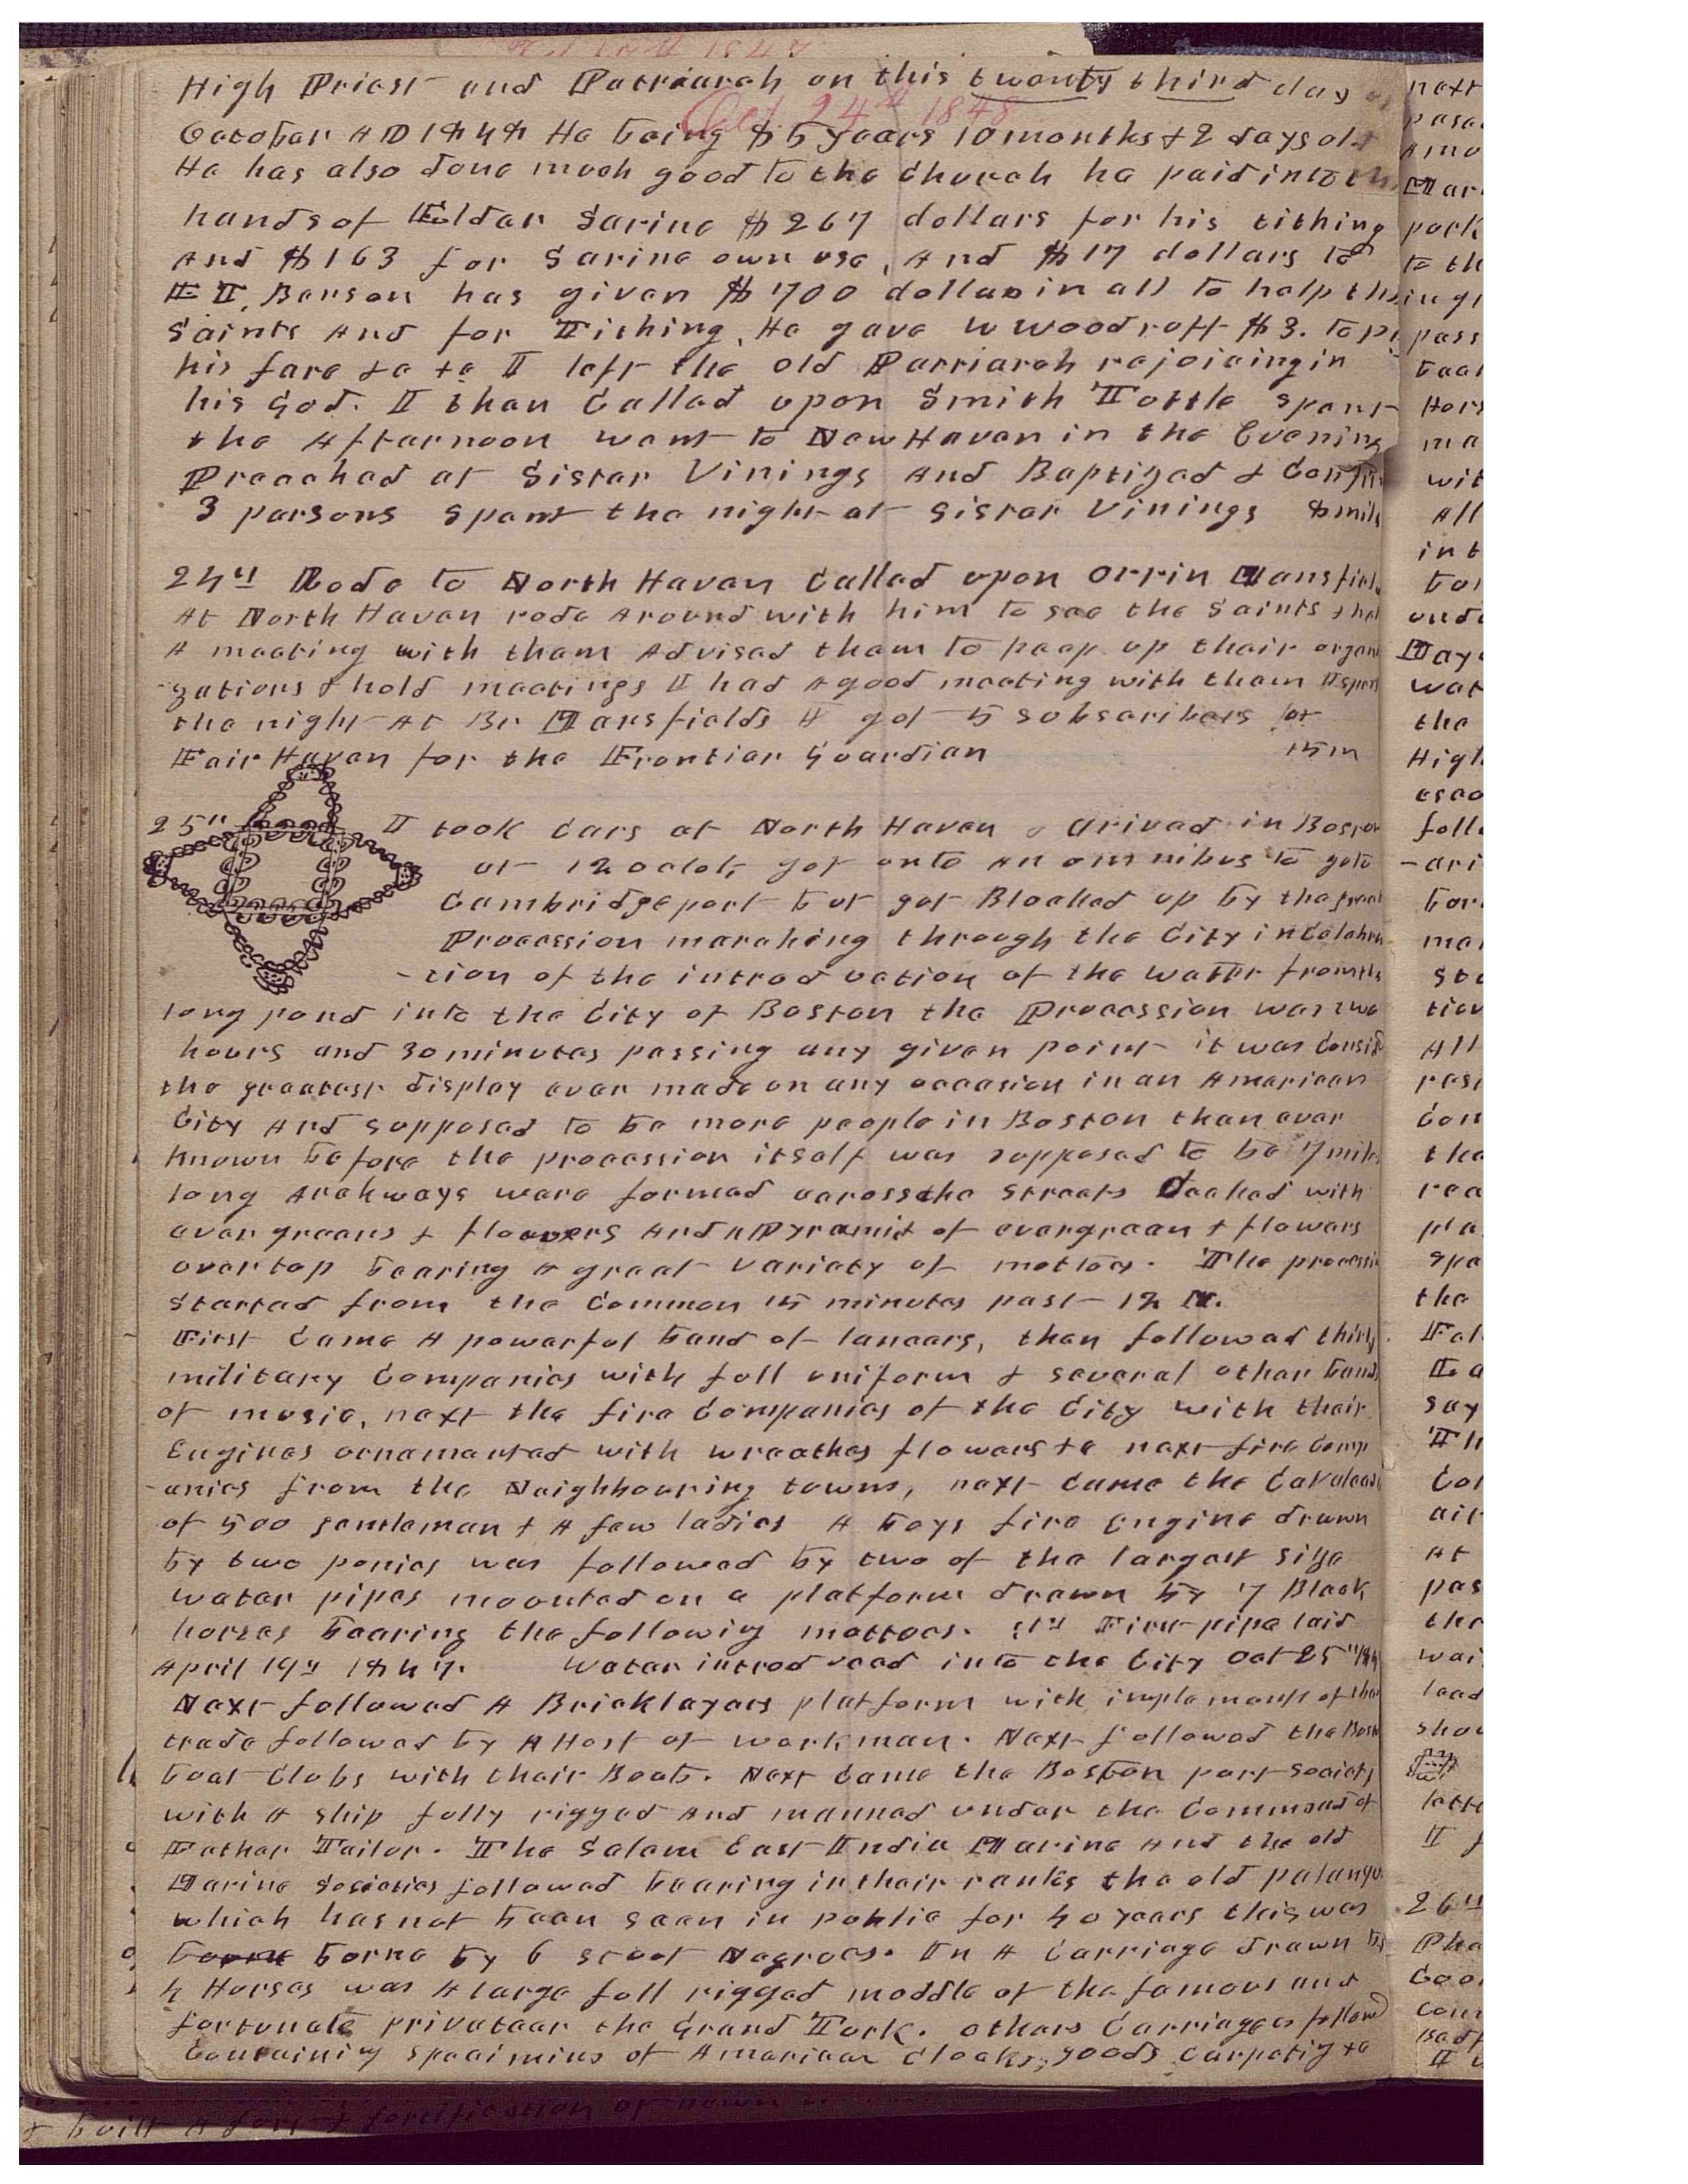 High Priest and Patriarch on this twenty third day of
Oct. 24th 1848
October AD 1848 He being 85 years 10 months & 2 days old
He has also done much good to the Church he paid into the
hands of Elder Sarine $267 dollars for his tithing
And $163 for Sarine own use, And $17 dollars to
E T. Benson has given $700 dollars in all to help the
Saints And for Tithing, He gave W Woodruff $3. to pay
his fare &c &c I left the old Patriarch rejoicing in
his God. I then Called upon Smith Tuttle spent
the Afternoon went to New Haven in the Evening
Preached at Sister Vinings And Baptized & Confir
3 persons spent the night at Sister Vinings 8 mile
24th Rode to North Haven Called upon Orrin Mansfield
At North Haven rode Around with him to see the Saints & had
A meeting with them Advised them to keep up their organi
-zations & hold meetings I had A good meeting with them I spent
the night At Br Mansfields I got 5 subscribers for
Fair Haven for the Frontier Guardian 15 m
25th I took Cars at North Haven & arived in Boston
at 12 oclok, got onto An omnibus to go to
Cambridgeport but got Blocked up by the great
Procession marching through the City in Celebra
-tion of the introduction of the water from the
long pond into the City of Boston the Procession was two
hours and 30 minutes passing any given point it was Consid
the greatest display ever made on any occasion in an American
City And supposed to be more people in Boston than ever
known before the procession itself was supposed to be 7 miles
long Archways were formed across the Streets Decked with
evergreens & flowers And A Pyramid of evergreen & flowers
over top bearing A great variety of mottoes. The procession
started from the Common 15 minutes past 12 M.
First Came A powerful band of lancers, then followed thirty
military Companies with full uniform & several other bands
of music, next the fire Companies of the City with their
Engines ornamented with wreathes flowers &c next fire Comp
-anies from the Neighbouring towns, next Came the Cavalcade
of 500 gentleman & A few ladies A boys fire engine drawn
by two ponies was followed by two of the largest size
water pipes mounted on a platform drawn by 7 Black
horses bearing the followig mottoes. 1st First pipe laid
April 19th 1847. Water introduced into the City Oct 25th/48
Next followed A Bricklayers platform with implements of their
trade followed by A Host of workman. Next followed the Boston
boat Clubs with their Boats. Next Came the Boston port Society
with A ship fully rigged And manned under the Command of
Father Tailor. The Salem East India Marine And the old
Marine Societies followed bearing in their ranks the old palanqu
which has not been seen in public for 40 years this was
borne by 6 stout Negroes. In A Carriage drawn by
4 Horses was A large full rigged moddle of the famous and
fortunate privateer the Grand Turk. others Carriages followd
Containing specimins of American Cloaks, goods Carpetig &c